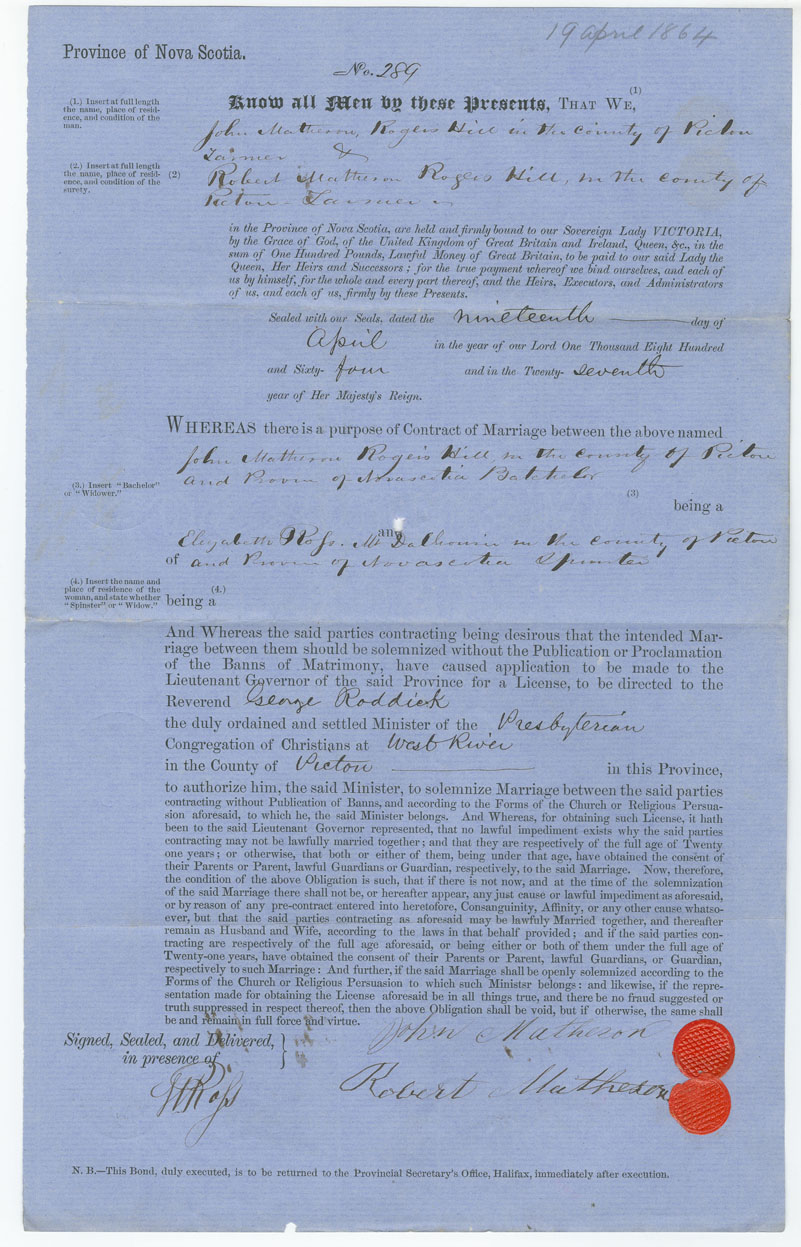 19 april 1864
Province of Nova Scotia.
No. 289
(1.) Insert at full length
the name, place of resid-
ence, and condition of the
man.
(1)
Know all Men by these Presents, THAT WE,
John Matheson, Rogers Hill in the county of Picton
Farmer &
(2.) Insert at full length
the name, place of resid-
ence, and condition of the
surety.
(2)
Robert Matheson Rogers Hill, in the county of
Picton Farmer
in the Province of Nova Scotia, are held and firmly bound to our Sovereign Lady VICTORIA,
by the Grace of God, of the United Kingdom of Great Britain and Ireland, Queen, &c., in the
sum of One Hundred Pounds, Lawful Money of Great Britain, to be paid to our said Lady the
Queen, Her Heirs and Successors; for the true payment whereof we bind ourselves, and each of
us by himself, for the whole and every part thereof, and the Heirs, Executors, and Administrators
of us, and each of us, firmly by these Presents.
Sealed with our Seals, dated the nineteenth day of
April in the year of our Lord One Thousand Eight Hundred
and Sixty- four and in the Twenty- seventh
year of Her Majesty's Reign.
WHEREAS there is a purpose of Contract of Marriage between the above named
John Matheson Rogers Hill in the county of Picton
and Provin of Novascotia Batchelor
(3.) Insert "Bachelor"
or "Widower."
(3)
being a
and
Elizabeth Ross. Mt Dalhousin in the county of Picton
of and Provin of Novascotia Spinster
(4.) Insert the name and
place of residence of the
woman, and state whether
"Spinster" or "Widow."
(4.)
being a
And Whereas the said parties contracting being desirous that the intended Mar-
riage between them should be solemnized without the Publication or Proclamation
of the Banns of Matrimony, have caused application to be made to the
Lieutenant Governor of the said Province for a License, to be directed to the
Reverend George Roddick
the duly ordained and settled Minister of the Presbyterian
Congregation of Christians at West River
in the County of Picton in this Province,
to authorize him, the said Minister, to solemnize Marriage between the said parties
contracting without Publication of Banns, and according to the Forms of the Church or Religious Persua-
sion aforesaid, to which he, the said Minister belongs. And Whereas, for obtaining such License, it hath
been to the said Lieutenant Governor represented, that no lawful impediment exists why the said parties
contracting may not be lawfully married together; and that they are respectively of the full age of Twenty
one years; or otherwise, that both or either of them, being under that age, have obtained the consent of
their Parents or Parent, lawful Guardians or Guardian, respectively, to the said Marriage. Now, therefore,
the condition of the above Obligation is such, that if there is not now, and at the time of the solemnization
of the said Marriage there shall not be, or hereafter appear, any just cause or lawful impediment as aforesaid,
or by reason of any pre-contract entered into heretofore, Consanguinity, Affinity, or any other cause whatso-
ever, but that the said parties contracting as aforesaid may be lawfuly Married together, and thereafter
remain as Husband and Wife, according to the laws in that behalf provided; and if the said parties con-
tracting are respectively of the full age aforesaid, or being either or both of them under the full age of
Twenty-one years, have obtained the consent of their Parents or Parent, lawful Guardians, or Guardian,
respectively to such Marriage: And further, if the said Marriage shall be openly solemnized according to the
Forms of the Church or Religious Persuasion to which such Ministsr belongs: and likewise, if the repre-
sentation made for obtaining the License aforesaid be in all things true, and there be no fraud suggested or
truth suppressed in respect thereof, then the above Obligation shall be void, but if otherwise, the same shall
be and remain in full force and virtue.
Signed, Sealed, and Delivered,
in presence of
John Matheson
Robert Matheson
Ross
N. B.—This Bond, duly executed, is to be returned to the Provincial Secretary's Office, Halifax, immediately after execution.